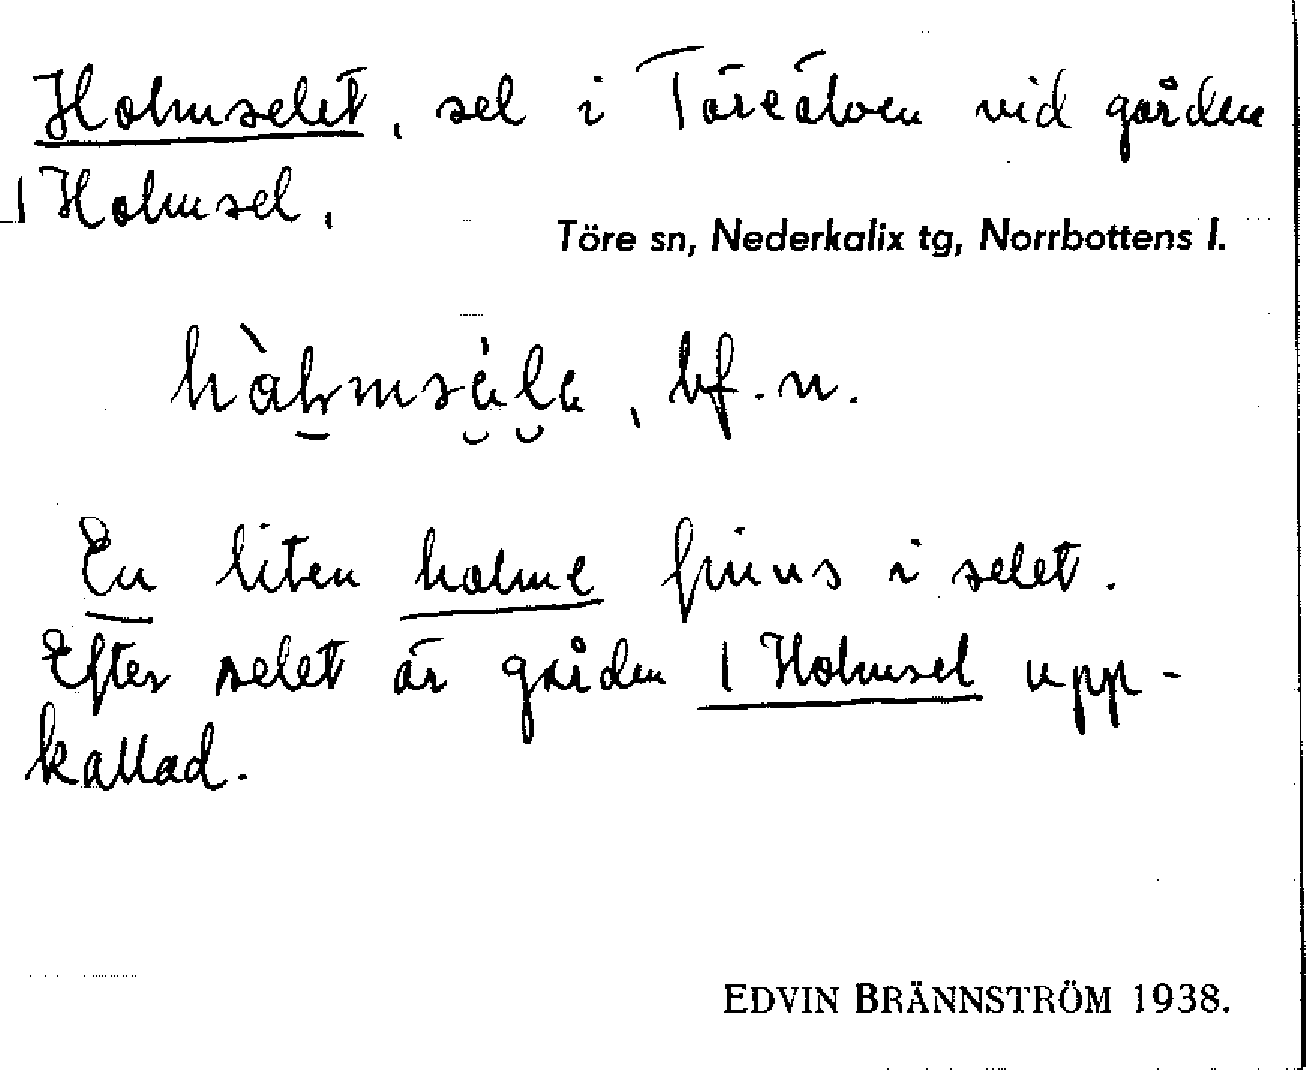 Holmselet, sel i Töreälven vid gården
1 Holmsel.
Töre sn, Nederkalix tg, Norrbottens l.
bf. n.
En liten holme finns i selet.
Efter selet är gården 1 Holmsel upp-
kallad.
EDVIN BRÄNNSTRÖM 1938.